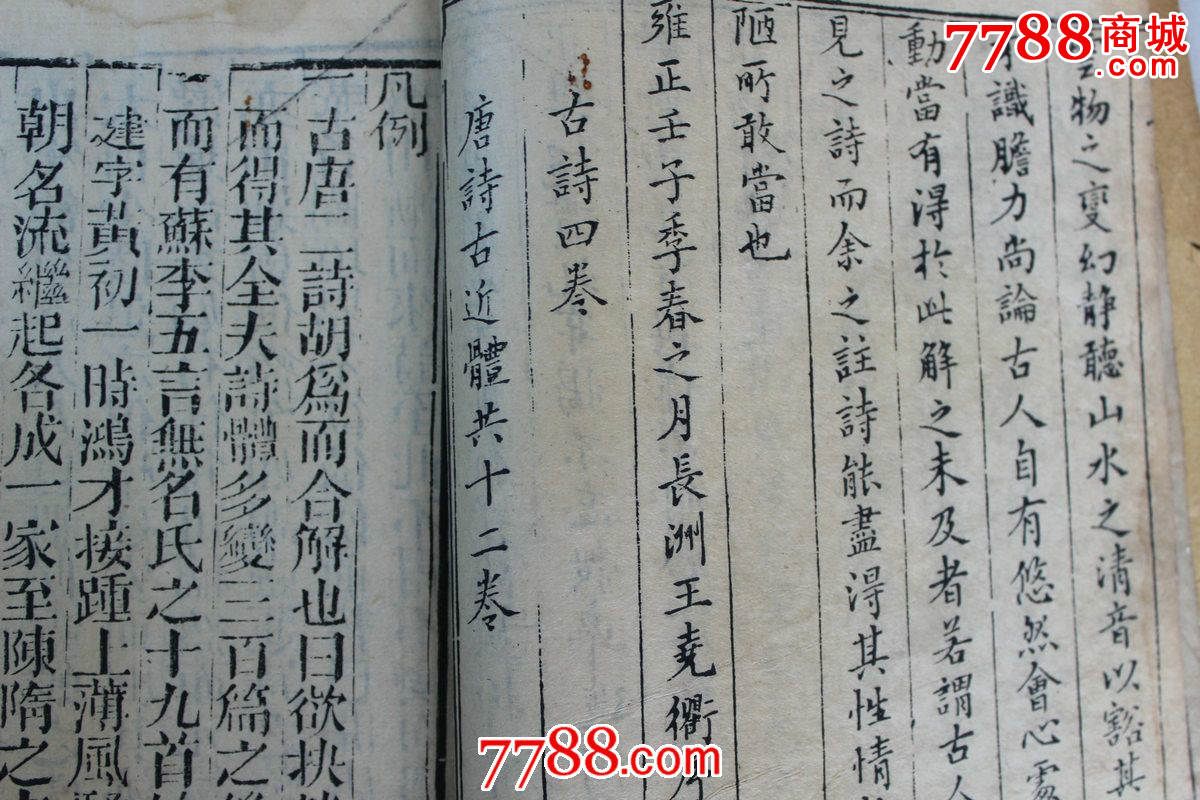 物之變幻静聽山水之清音以豁其
識膽力尚論古人自有悠然會心處
動當有得於此解之未及者若謂古人
見之詩而余之註詩能盡得其性情
陋所敢當也
雍正壬子季春之月長洲王堯衢
古詩四卷
唐詩古近體共十二卷
凡例
一古唐二詩胡爲而合解也曰欲抉
而得其全夫詩體多變三百篇之後
而有蘇李五言無名氏之十九首
建字黃初一時鴻才接踵上薄風
朝名流繼起各成一家至陳隋之
7788商城
7788.com